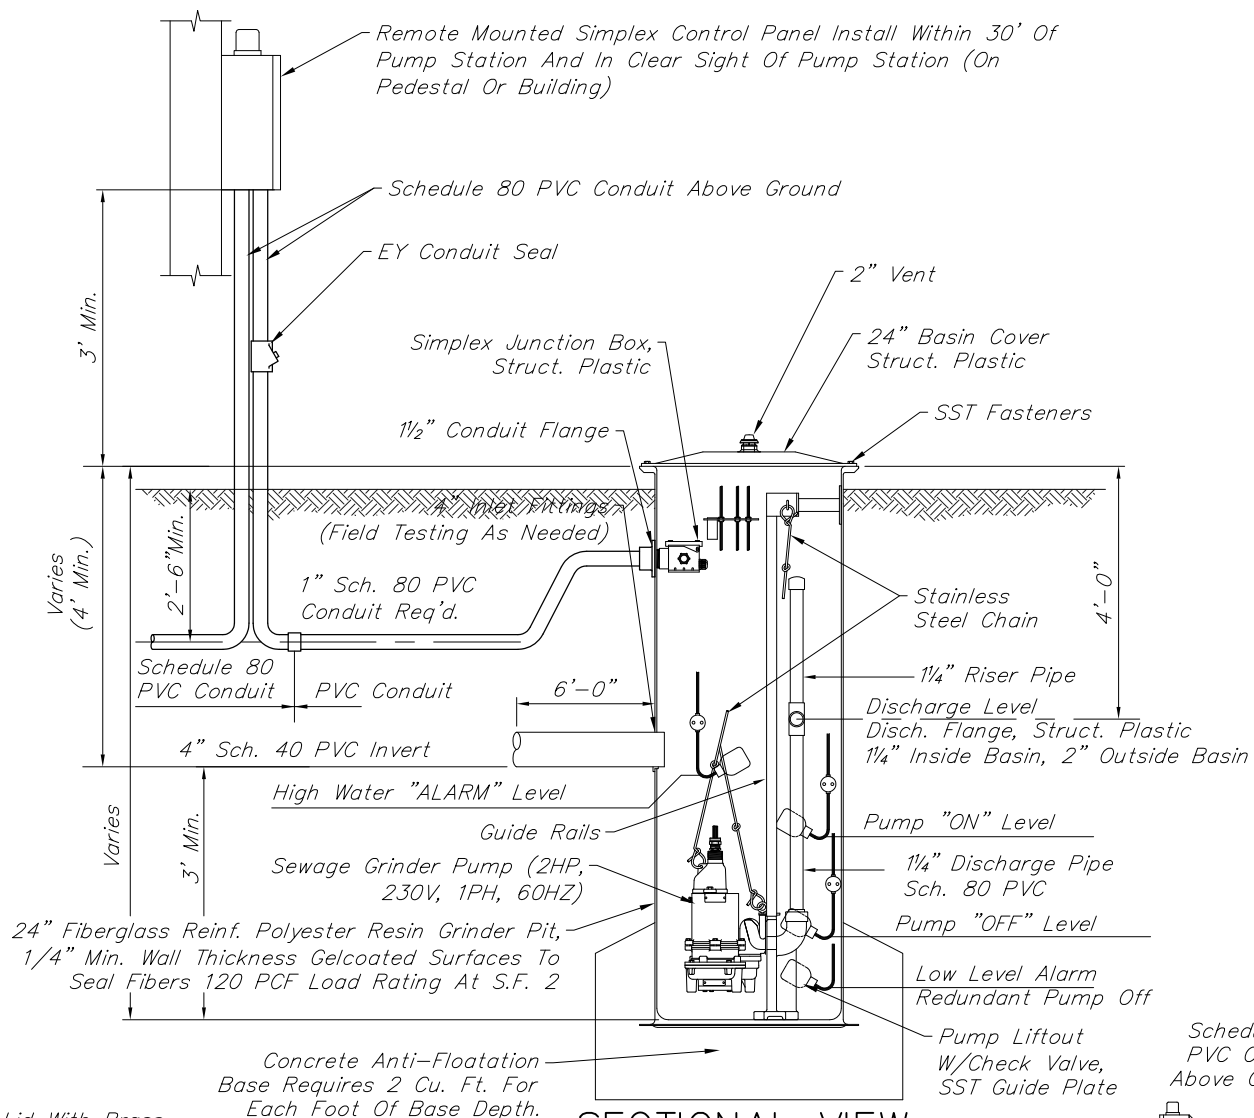 Remote Mounted Simplex Control Panel Install Within 30' Of
Pump Station And In Clear Sight Of Pump Station (On
Pedestal Or Building)
Schedule 80 PVC Conduit Above Ground
EY Conduit Seal
3' Min.
2" Vent
24" Basin Cover
Struct. Plastic
Simplex Junction Box,
Struct. Plastic
SST Fasteners
1½" Conduit Flange
4" Inlet Fittings
(Field Testing As Needed)
Varies
(4' Min.)
2'-6"Min.
1" Sch. 80 PVC
Conduit Req'd.
4'-0"
Stainless
Steel Chain
Schedule 80
PVC Conduit
PVC Conduit
6'-0"
1¼" Riser Pipe
Discharge Level
Disch. Flange, Struct. Plastic
1¼" Inside Basin, 2" Outside Basin
4" Sch. 40 PVC Invert
High Water "ALARM" Level
Varies
3' Min.
Guide Rails
Pump "ON" Level
Sewage Grinder Pump (2HP,
230V, 1PH, 60HZ)
1¼" Discharge Pipe
Sch. 80 PVC
24" Fiberglass Reinf. Polyester Resin Grinder Pit,
1/4" Min. Wall Thickness Gelcoated Surfaces To
Seal Fibers 120 PCF Load Rating At S.F. 2
Pump "OFF" Level
Low Level Alarm
Redundant Pump Off
Pump Liftout
W/Check Valve,
SST Guide Plate
Concrete Anti-Floatation
Base Requires 2 Cu. Ft. For
Each Foot Of Base Depth.
SECTIONAL VIEW
PVC
Above
Lid With Brass